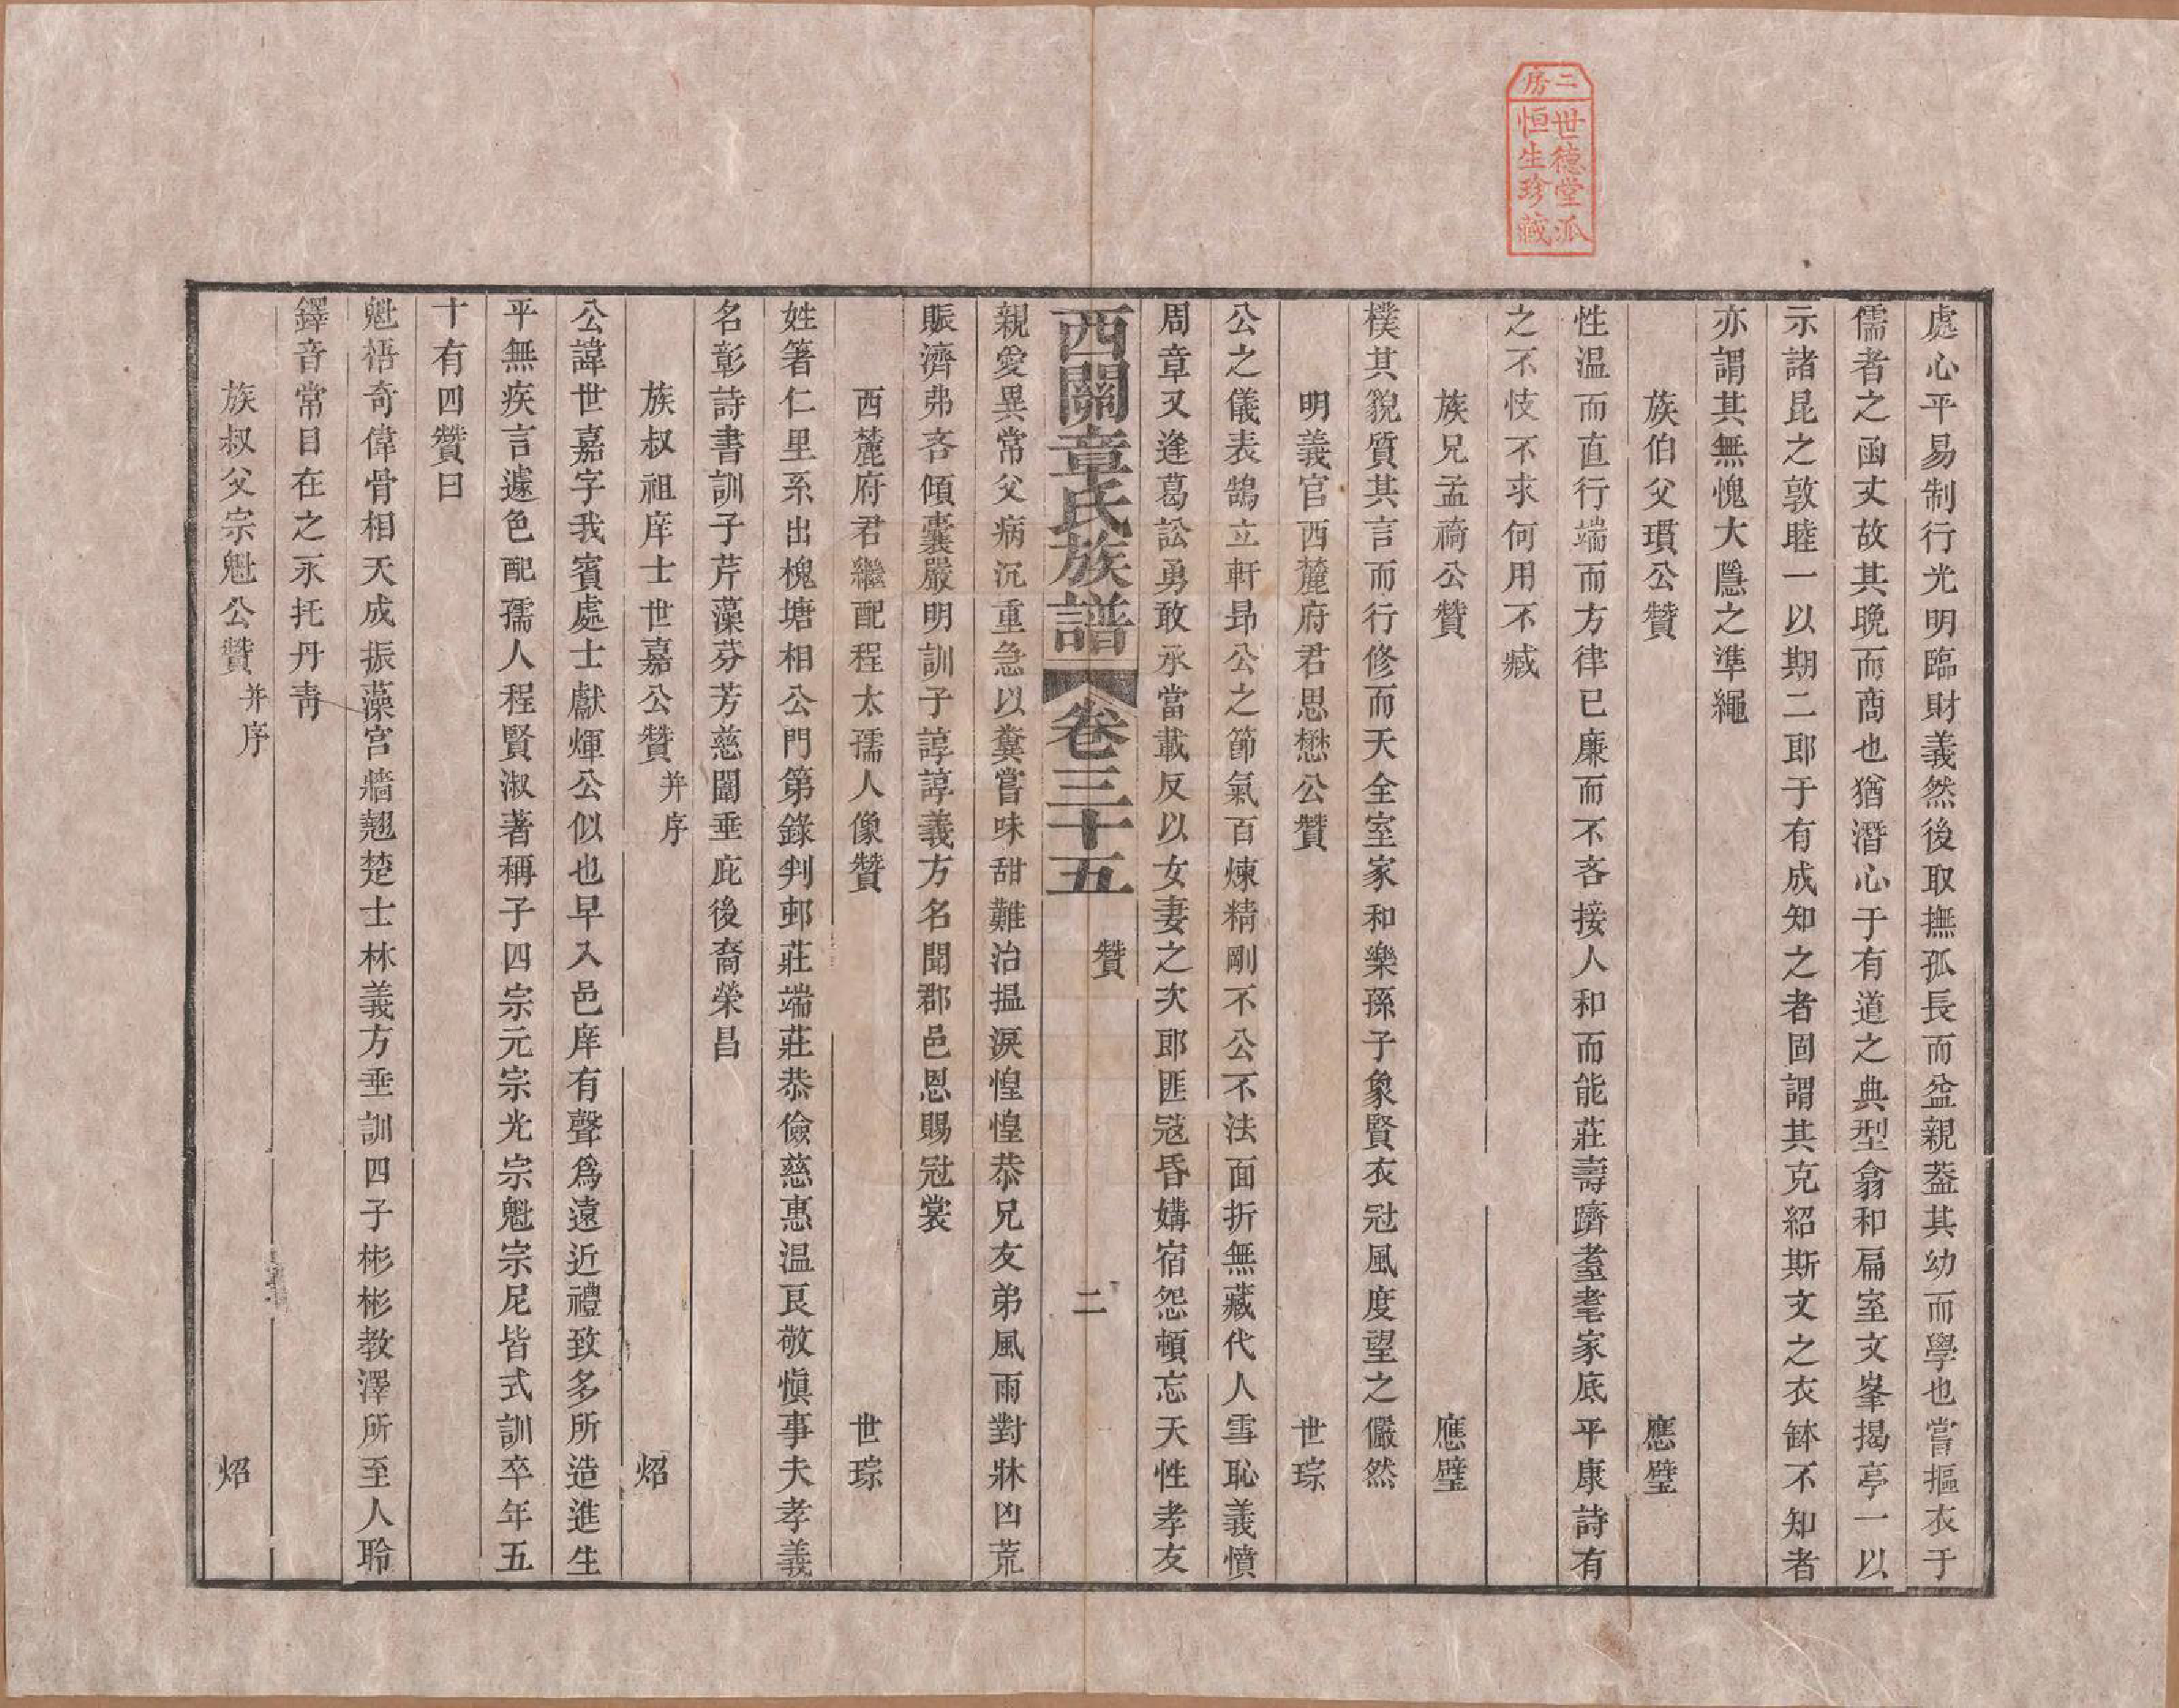 二房
世德堂派
恒生珍藏
處心平易制行光明臨財義然後取撫孤長而益親葢其幼而學也嘗摳衣于
儒者之函丈故其晚而商也猶潛心于有道之典型翕和扁室文峯揭亭一以
示諸昆之敦睦一以期二郎于有成知之者固謂其克紹斯文之衣缽不知者
亦謂其無愧大隱之準繩
族伯父瑻公贊　應璧
性温而直行端而方律已廉而不吝接人和而能莊壽躋耋耄家底平康詩有
之不忮不求何用不臧
族兄孟禞公贊　應璧
樸其貌質其言而行修而天全室家和樂孫子象賢衣冠風度望之儼然
明義官西麓府君思懋公贊　世琮
公之儀表鵠立軒昻公之節氣百煉精剛不公不法面折無藏代人雪恥義憤
周章又逢葛訟勇敢承當載反以女妻之次郎匪寇昏媾宿怨頓忘天性孝友
西關章氏族譜　卷三十五　贊　二
親愛異常父病沉重急以糞嘗味甜難治揾淚惶惶恭兄友弟風雨對牀凶荒
賑濟弗吝傾囊嚴明訓子諄諄義方名聞郡邑恩賜冠裳
西麓府君繼配程太孺人像贊　世琮
姓箸仁里系出槐塘相公門第錄判邨莊端莊恭儉慈惠温良敬愼事夫孝義
名彰詩書訓子芹藻芬芳慈闈垂庇後裔榮昌
族叔祖庠士世嘉公贊并序　炤
公諱世嘉字我賓處士獻煇公似也早入邑庠有聲爲遠近禮致多所造進生
平無疾言遽色配孺人程賢淑著稱子四宗元宗光宗魁宗尼皆式訓卒年五
十有四贊曰
魁梧奇偉骨相天成振藻宮牆翹楚士林義方垂訓四子彬彬教澤所至人聆
鐸音常目在之永托丹靑
族叔父宗魁公贊并序　炤